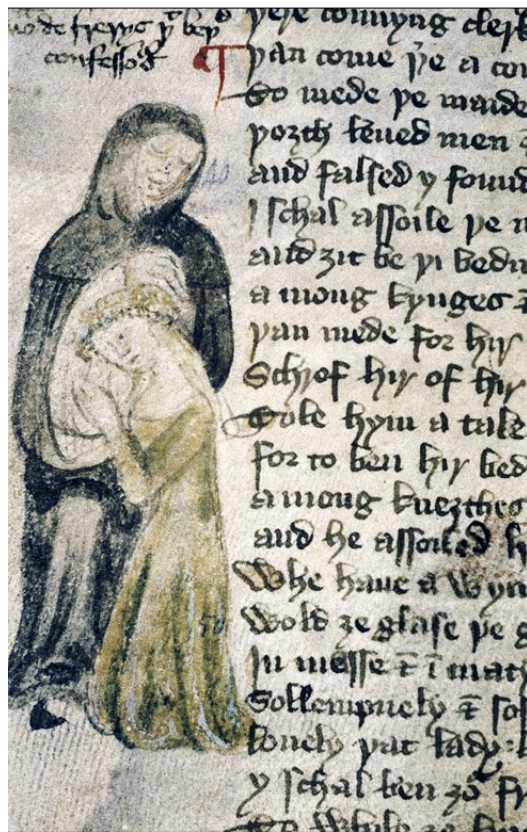 de frerys þt beþ
confessoȝ
þere comyng cler
þan come þe a con
To mede þe maide
þorȝh leued men
and falsed y found
I schal assoile þe
and ȝit be þi bed
a mong kynges
þan mede for hir
Schrof hir of hir
Tole hym a tale
for to ben hir bed
a mong kneȝthes
and he assoiled h
Whe haue a wyn
Wold ȝe glase þe g
In messe & ī maty
Sollempnely & so
louely þat lady
y schal ben ȝoʳ fr